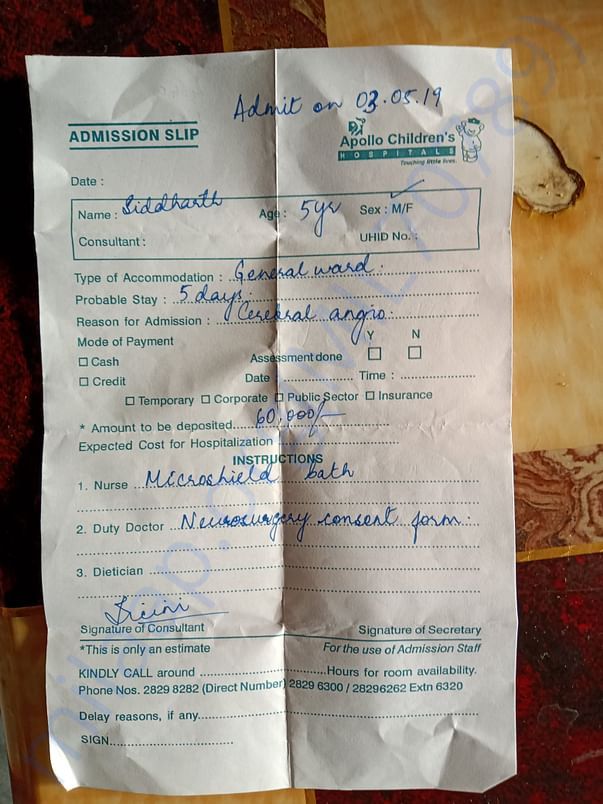 Admit on 03.05.19
ADMISSION SLIP
Apollo Children's
HOSPITALS
Touching little lives.
Date :
Name : Siddharth Age : 5yr Sex : M/F
Consultant : UHID No. :
Type of Accommodation : General ward.
Probable Stay : 5 days.
Reason for Admission : Cerebral angio.
Mode of Payment Y N
Cash Assessment done
Credit Date : Time :
Temporary Corporate Public Sector Insurance
* Amount to be deposited 60,000/-
Expected Cost for Hospitalization
INSTRUCTIONS
1. Nurse Microshield bath
2. Duty Doctor Neurosurgery consent form.
3. Dietician
Signature of Consultant Signature of Secretary
*This is only an estimate For the use of Admission Staff
KINDLY CALL around Hours for room availability.
Phone Nos. 2829 8282 (Direct Number) 2829 6300 / 28296262 Extn 6320
Delay reasons, if any
SIGN